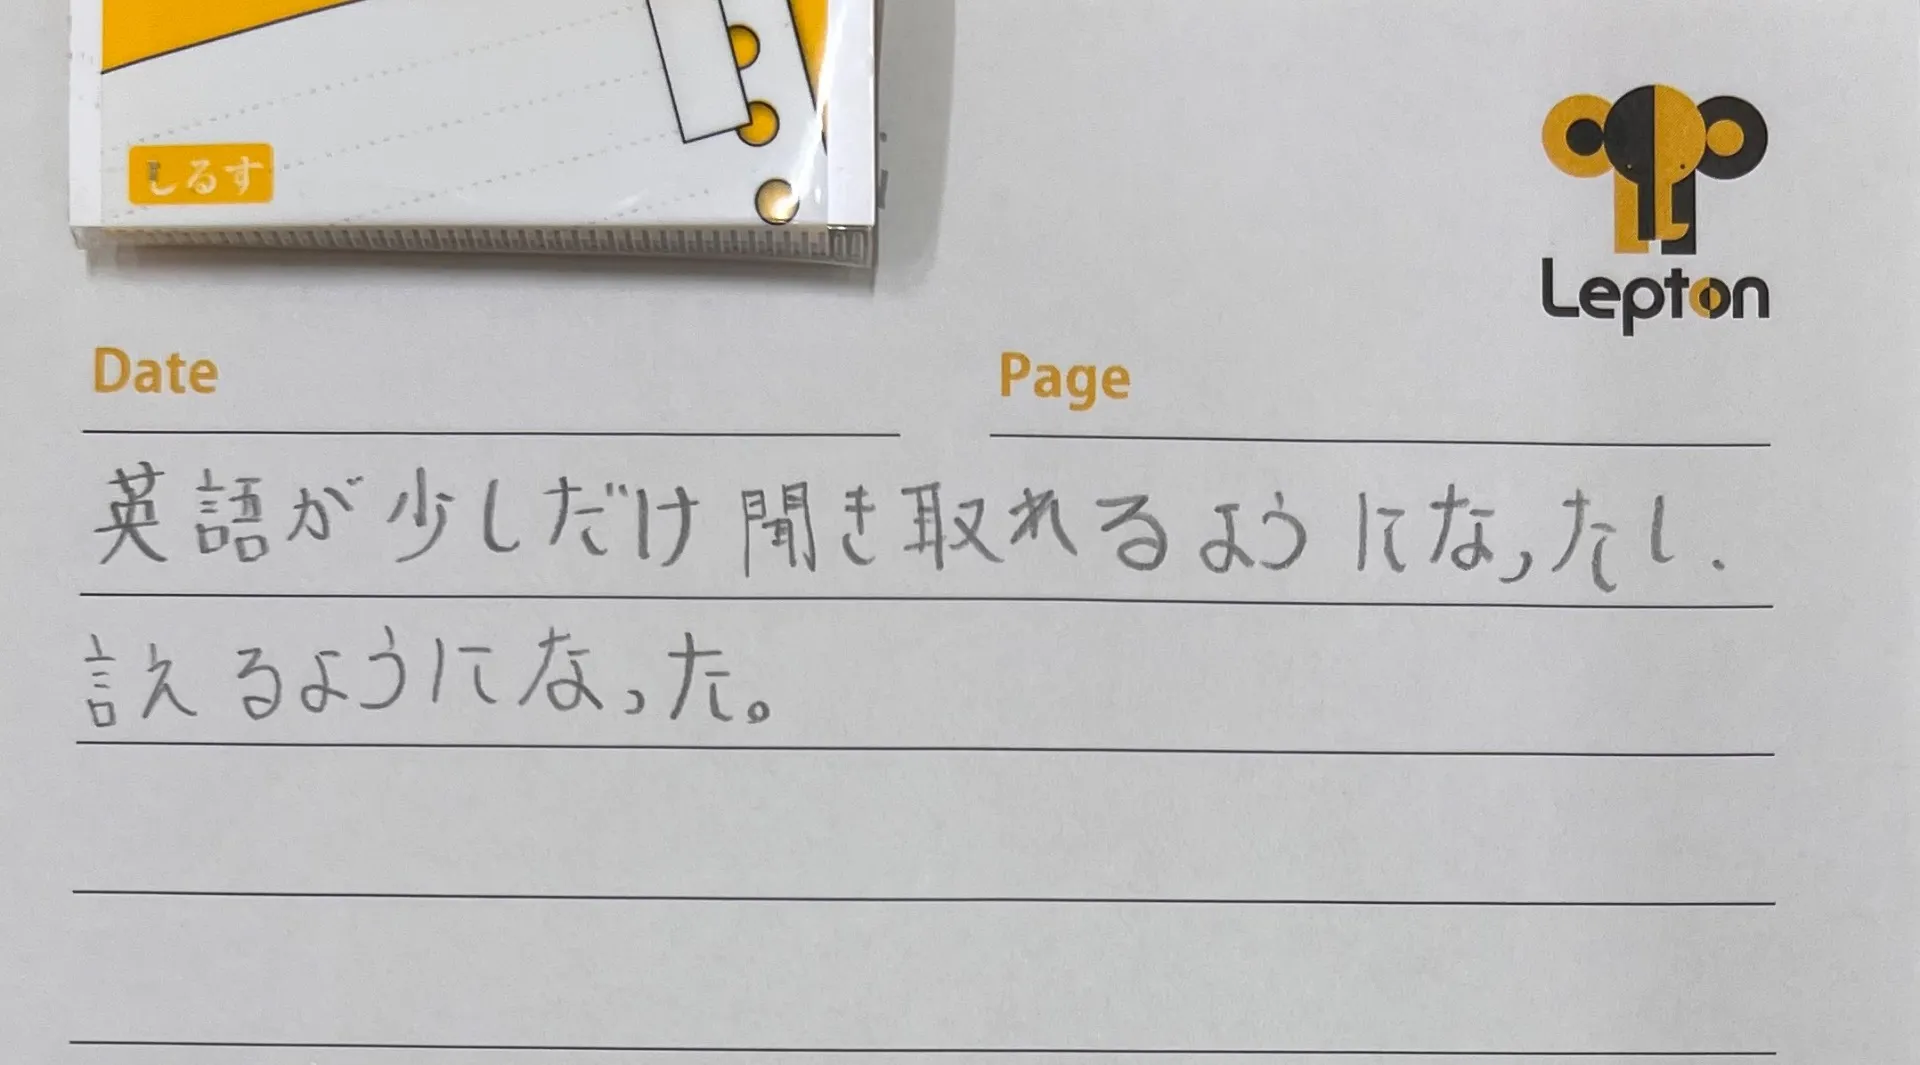 しるす
Lepton
Date
Page
英語が少しだけ聞き取れるようになったし、
言えるようになった。